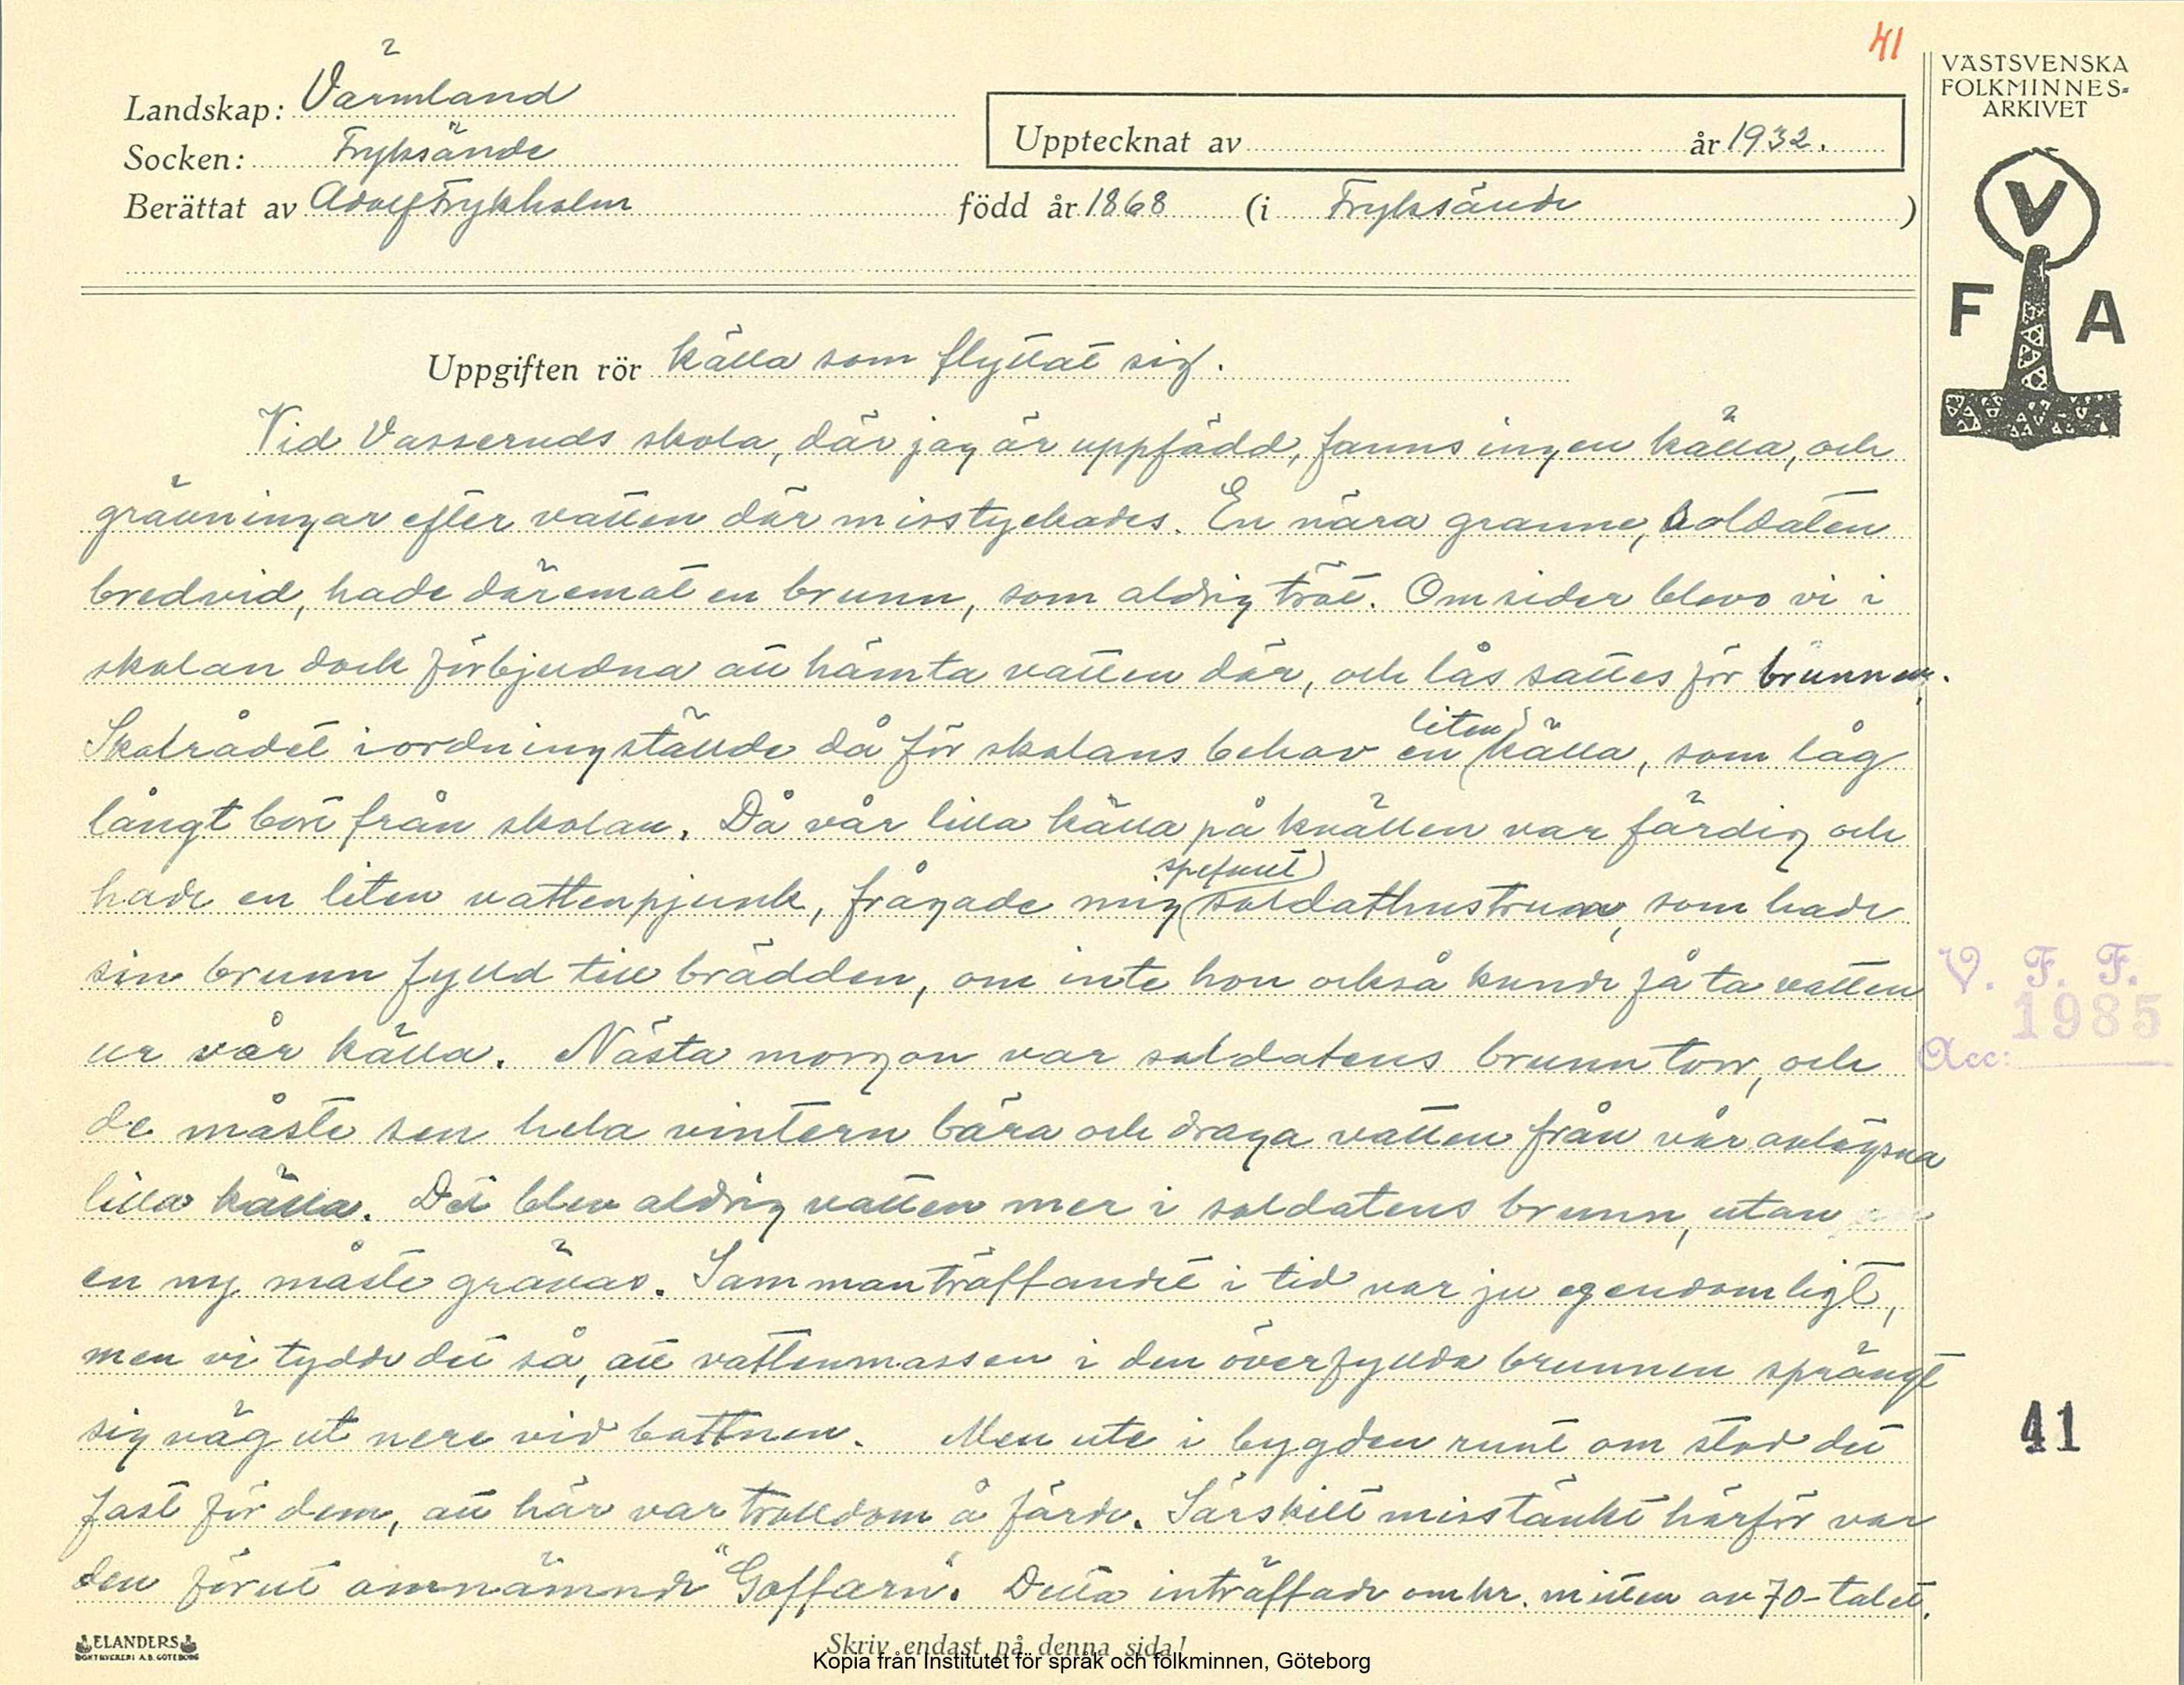 41
VÄSTSVENSKA
FOLKMINNES=
ARKIVET
Landskap: Värmland
Upptecknat av år 1932.
Socken: Fryksände
Berättat av Adolf Frykholm född år 1868 (i Fryksände)
V
F A
Uppgiften rör källa som flyttat sig.
Vid Vasseruds skola, där jag är uppfödd, fanns ingen källa, och
grävningar efter vatten där misslyckades. En nära granne, soldaten
bredvid, hade däremot en brunn, som aldrig tröt. Omsider blevo vi i
skolan dock förbjudna att hämta vatten där, och lås sattes för brunnen.
Skolrådet iordningställde då för skolans behov en (liten) källa, som låg
långt bort från skolan. Då vår lilla källa på kvällen var färdig och
hade en liten vattenpjunk, frågade mig (spefullt) soldathustrun, som hade
sin brunn fylld till brädden, om inte hon också kunde få ta vatten
ur vår källa. Nästa morgon var soldatens brunn torr, och
de måste sen hela vintern bära och draga vatten från vår avlägsna
lilla källa. Det blev aldrig vatten mer i soldatens brunn, utan
en ny måste grävas. Sammanträffandet i tid var ju egendomligt,
men vi tydde det så, att vattenmassen i den överfyllda brunnen sprängt
sig väg ut nere vid bottnen. Men ute i bygden runt om stod det
fast för dem, att här var trolldom å färde. Särskilt misstänkt härför var
den förut omnämnde "Goffarn". Detta inträffade omkr. mitten av 70-talet.
V. F. F.
1985
Acc:
41
ELANDERS
BOKTRYCKERI A.B. GÖTEBORG
Skriv endast på denna sida!
Kopia från Institutet för språk och folkminnen, Göteborg